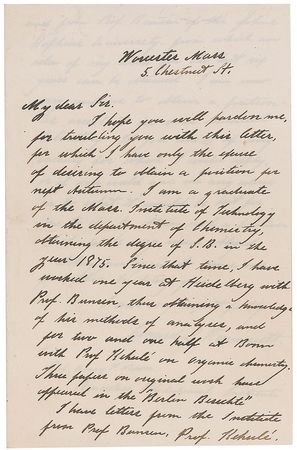 Worcester Mass
5. Chestnut St.
My dear Sir.
I hope you will pardon me,
for troubling you with this letter,
for which I have only the excuse
of desiring to obtain a position for
next Autumn. I am a graduate
of the Mass. Institute of Technology
in the department of Chemistry,
attaining the degree of S.B. in the
year 1875. Since that time, I have
worked one year at Heidelberg with
Prof. Bunsen, thus attaining a knowledge
of his methods of analyses, and
for two and one half at Bonn
with Prof Kekulé on organic chemistry.
Three papers on original work have
appeared in the "Berlin Berichte"
I have letters from the Institute
from Prof Bunsen, Prof. Kekulé.